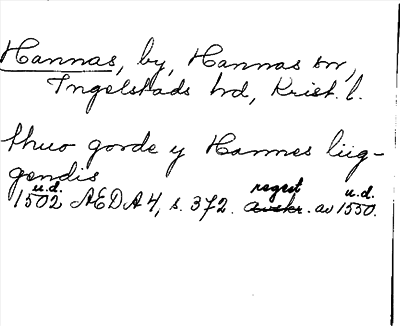 Hannas, by, Hannas sn,
Ingelstads hd, Krist. l.
thuo gorde y Hannes liig-
gendis
u.d. regest u.d.
1502 AEDA 4, s. 372. avskr. av 1550.